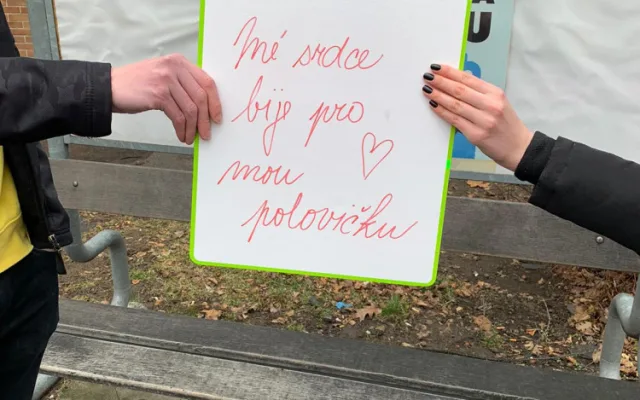 Mé srdce
bije pro
mou
polovičku
U